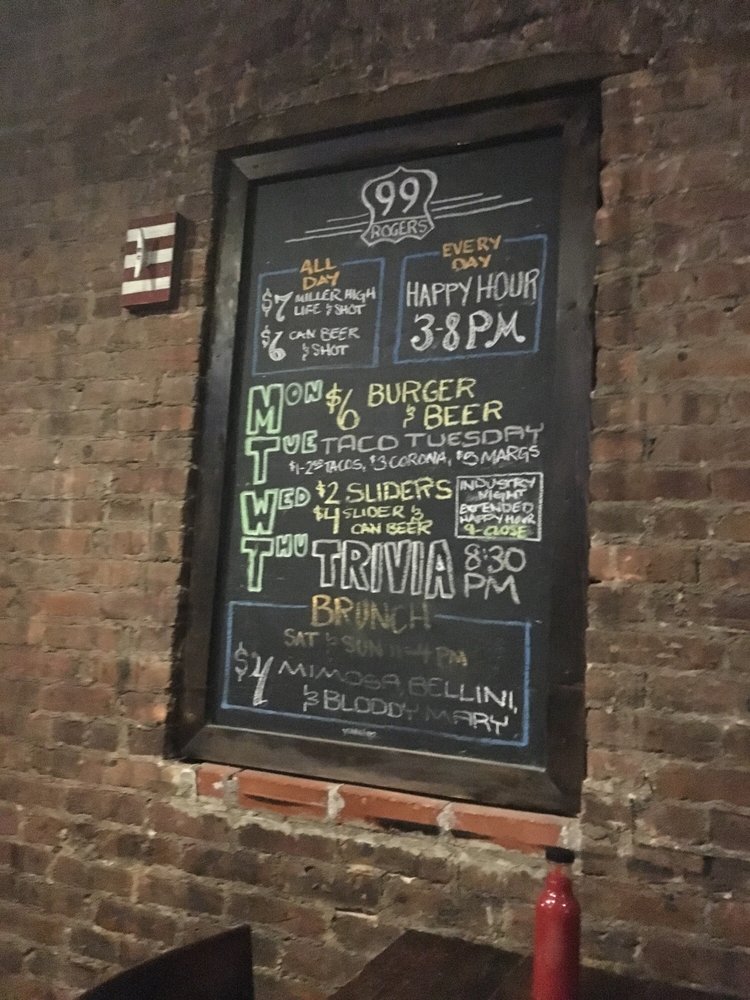 99
ROGERS
ALL
DAY
$7 MILLER HIGH
LIFE & SHOT
$6 CAN BEER
& SHOT
EVERY
DAY
HAPPY HOUR
3-8PM
MON $6 BURGER
& BEER
TUE TACO TUESDAY
TACOS, $3 CORONA, $5 MARGS
WED $2 SLIDERS
$4 SLIDER &
CAN BEER
INDUSTRY
NIGHT
EXTENDED
HAPPY HOUR
9-CLOSE
THU TRIVIA 8:30
PM
BRUNCH
SAT & SUN 11-4 PM
$4 MIMOSA, BELLINI,
& BLOODY MARY